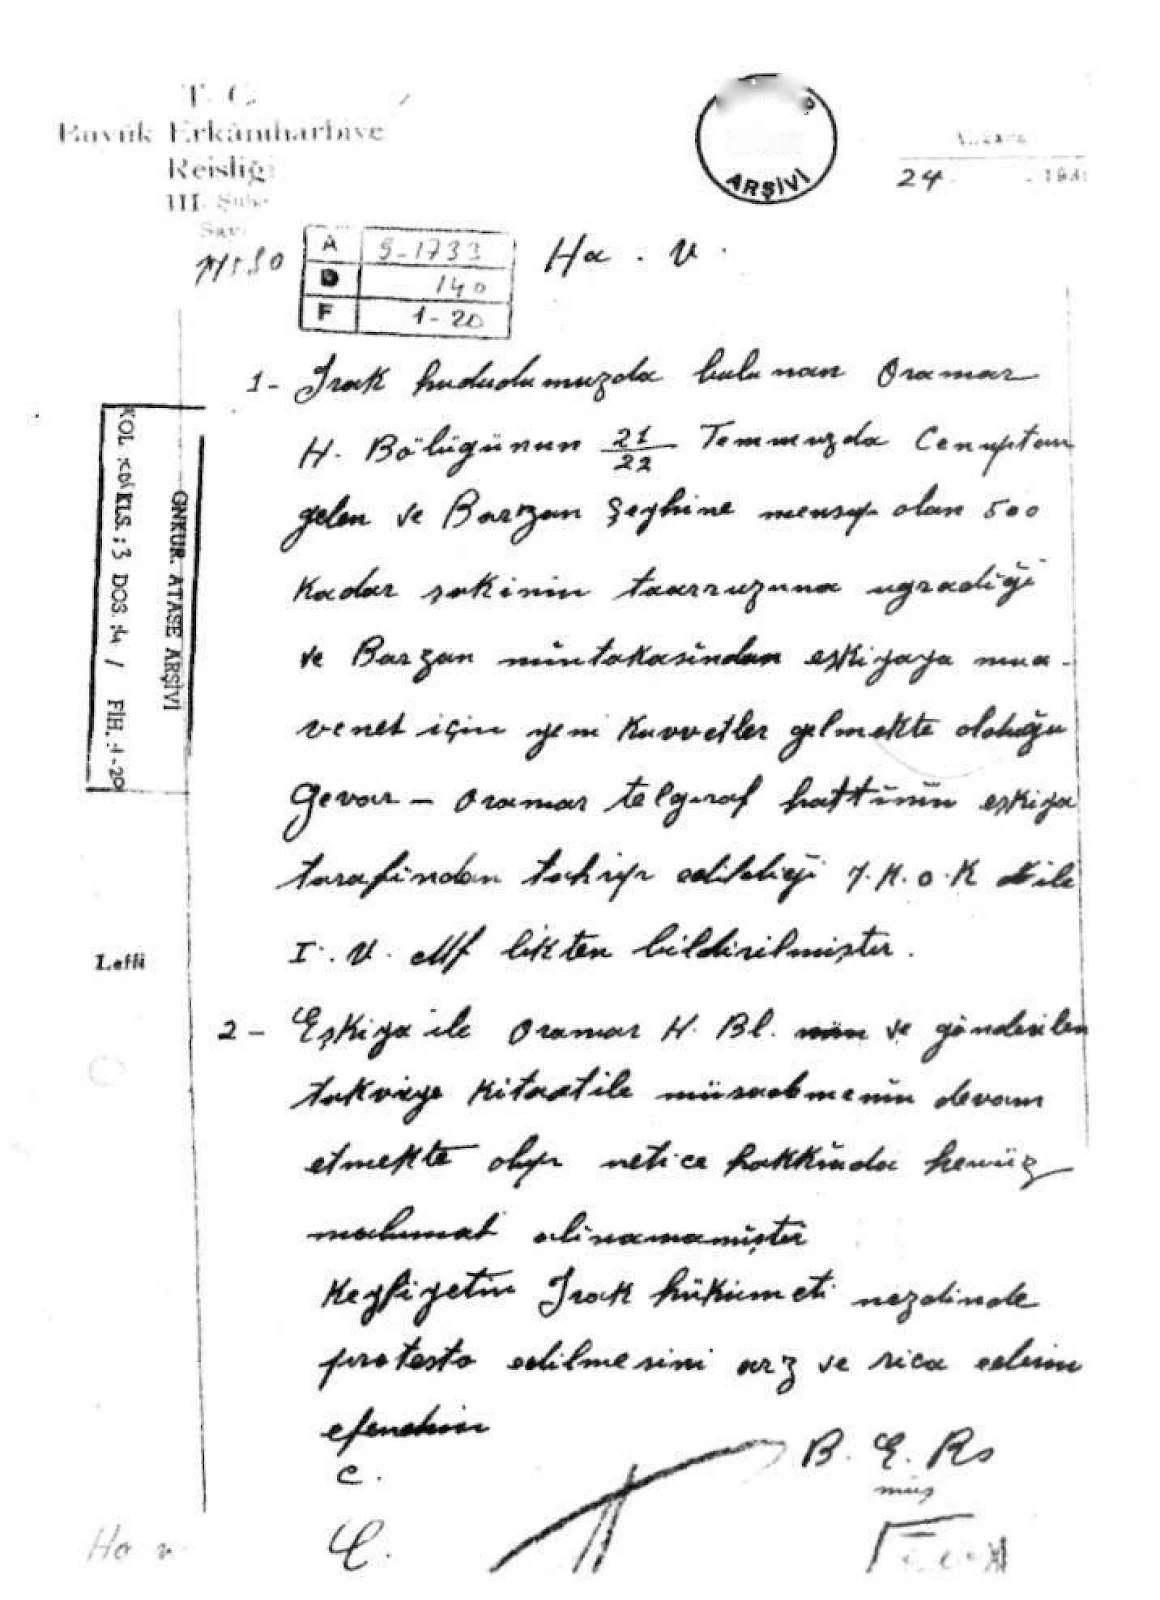 T. C.
Büyük Erkânıharbiye
Reisliği
III. Şube
Sayı
ARŞİVİ
Ankara
24 . . 193
A 9-1733
D 140
F 1-20
Ha . V .
1- Irak hududumuzda bulunan Oramar
H. Bölüğünün 21/22 Temmuzda Cenuptan
gelen ve Barzan Şeyhine mensup olan 500
kadar şakinin taarruzuna uğradığı
ve Barzan mıntakasından eşkiyaya mua-
venet için yeni kuvvetler gelmekte olduğu
Gevar - Oramar telgraf hattının eşkiya
tarafından tahrip edildiği 7.K.O.K ile
I. V. Mf likten bildirilmiştir.
2- Eşkiya ile Oramar H. Bl. ve gönderilen
takviye kitaatile müsademenin devam
etmekte olup netice hakkında henüz
malumat alınamamıştır
Keyfiyetin Irak hükümeti nezdinde
protesto edilmesini arz ve rica ederim
efendim
GNKUR. ATASE ARŞİVİ
KLS.:3 DOS.:4 / FİH.:1-20
Leffi
C.
B. E. Rs
müş
Ha v.